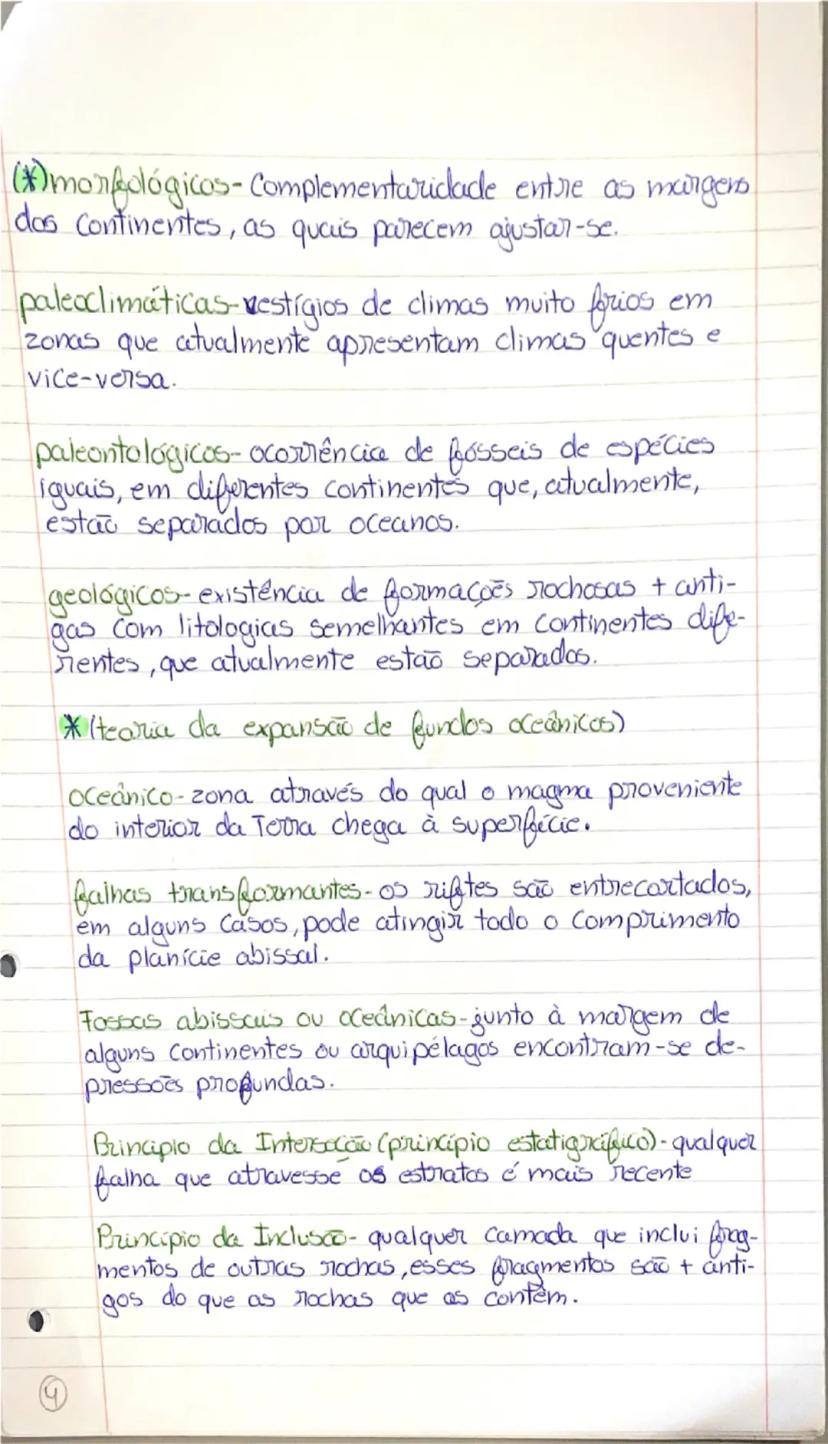 (*) morfológicos - Complementaridade entre as margens
dos continentes, as quais parecem ajustar-se.
paleoclimáticas - vestígios de climas muito frios em
zonas que atualmente apresentam climas quentes e
vice-versa.
paleontológicos - ocorrência de fósseis de espécies
iguais, em diferentes continentes que, atualmente,
estão separados por oceanos.
geológicos - existência de formações rochosas + anti-
gas com litologias semelhantes em continentes dife-
rentes, que atualmente estão separados.
* (teoria da expansão de fundos oceânicos)
oceânico - zona através do qual o magma proveniente
do interior da Terra chega à superfície.
falhas transformantes - os riftes são entrecortados,
em alguns casos, pode atingir todo o comprimento
da planície abissal.
Fossas abissais ou oceânicas - junto à margem de
alguns continentes ou arquipélagos encontram-se de-
pressões profundas.
Princípio da Interseção (princípio estatigráfico) - qualquer
falha que atravesse os estratos é mais recente
Princípio da Inclusão - qualquer camada que inclui frag-
mentos de outras rochas, esses fragmentos são + anti-
gos do que as rochas que os contêm.
4